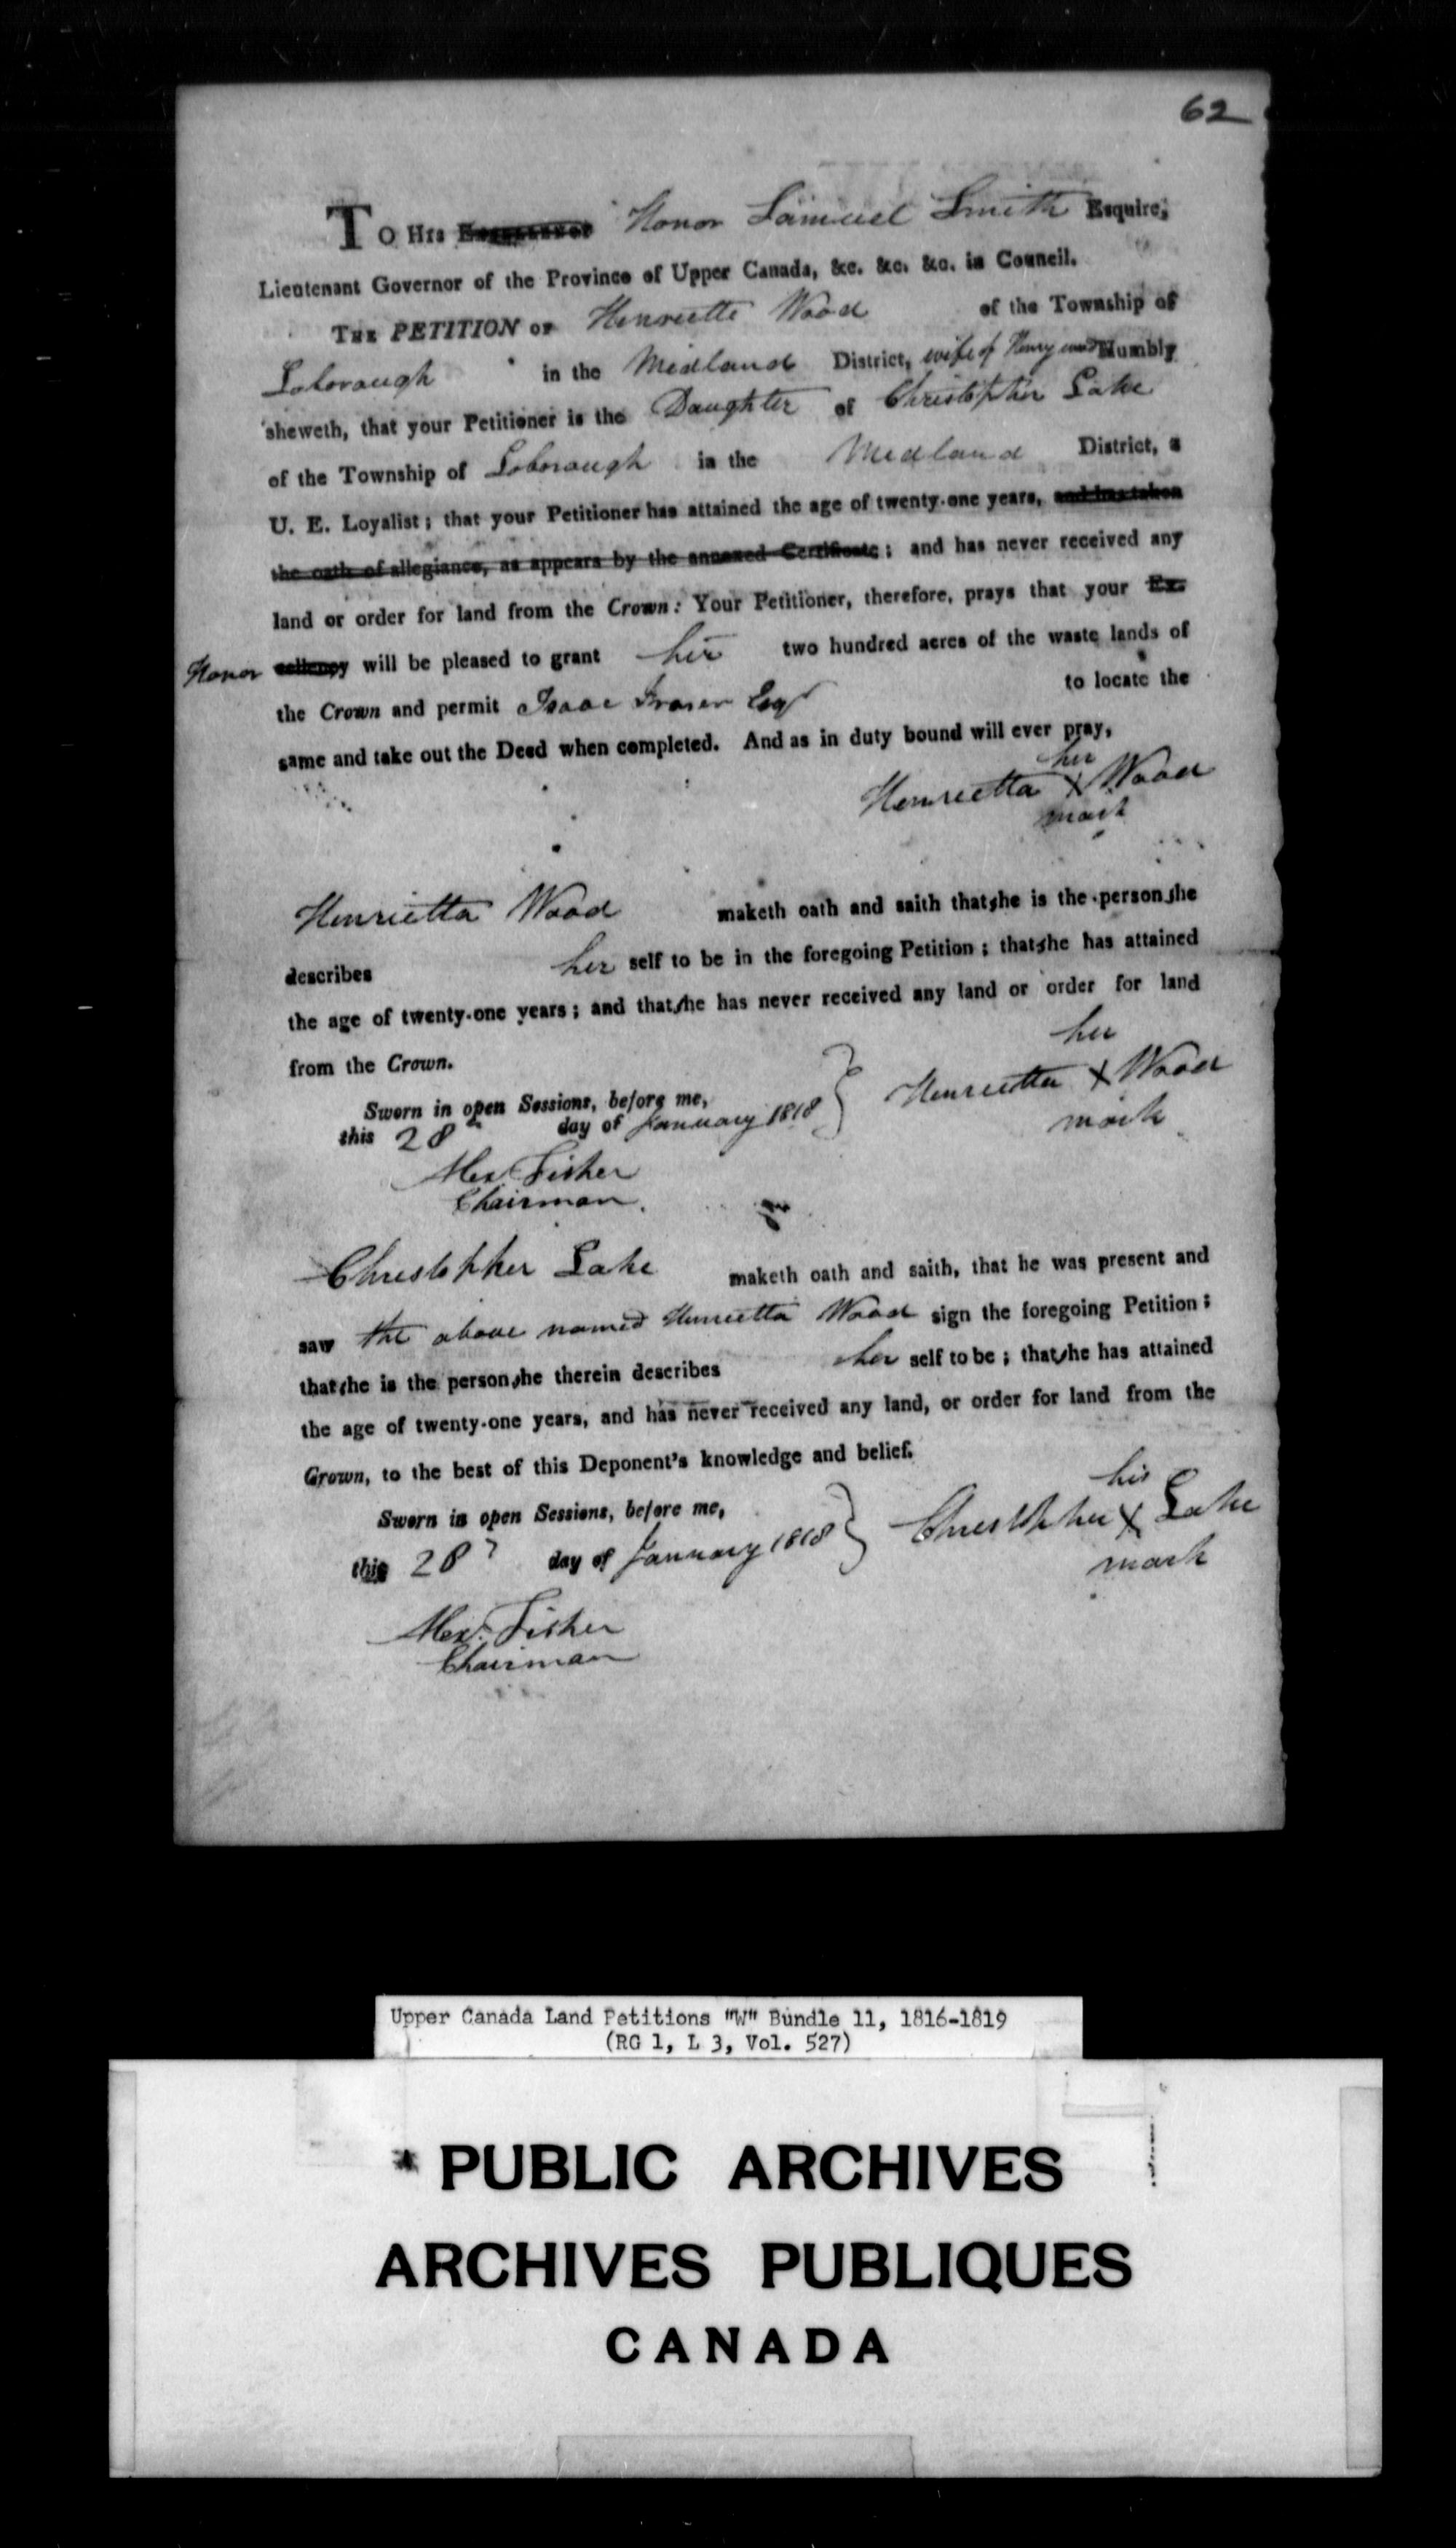 62
To His Excellency Honor Samuel Smith Esquire,
Lieutenant Governor of the Province of Upper Canada, &c. &c. &c. in Council.
The PETITION of Henriette Wood of the Township of
Loborough in the Midland District, wife of Henry wood Humbly
sheweth, that your Petitioner is the Daughter of Christopher Lake
of the Township of Loborough in the Midland District, a
U. E. Loyalist; that your Petitioner has attained the age of twenty-one years, and has taken
the oath of allegiance, as appears by the annexed Certificate; and has never received any
land or order for land from the Crown: Your Petitioner, therefore, prays that your Ex-
Honor cellency will be pleased to grant her two hundred acres of the waste lands of
the Crown and permit Isaac Fraser Esqr to locate the
same and take out the Deed when completed. And as in duty bound will ever pray,
her
Henrietta X Wood
mark
Henrietta Wood maketh oath and saith that she is the person she
describes her self to be in the foregoing Petition; that she has attained
the age of twenty-one years; and that she has never received any land or order for land
from the Crown.
her
Sworn in open Sessions, before me,
this 28 day of January 1818 } Henrietta X Wood
mark
Alex. Fisher
Chairman.
Christopher Lake maketh oath and saith, that he was present and
saw the above named Henrietta Wood sign the foregoing Petition;
that she is the person she therein describes her self to be; that she has attained
the age of twenty-one years, and has never received any land, or order for land from the
Crown, to the best of this Deponent's knowledge and belief.
his
Sworn in open Sessions, before me,
this 28 day of January 1818 } Christopher X Lake
mark
Alex. Fisher
Chairman
Upper Canada Land Petitions "W" Bundle 11, 1816-1819
(RG 1, L 3, Vol. 527)
PUBLIC ARCHIVES
ARCHIVES PUBLIQUES
CANADA